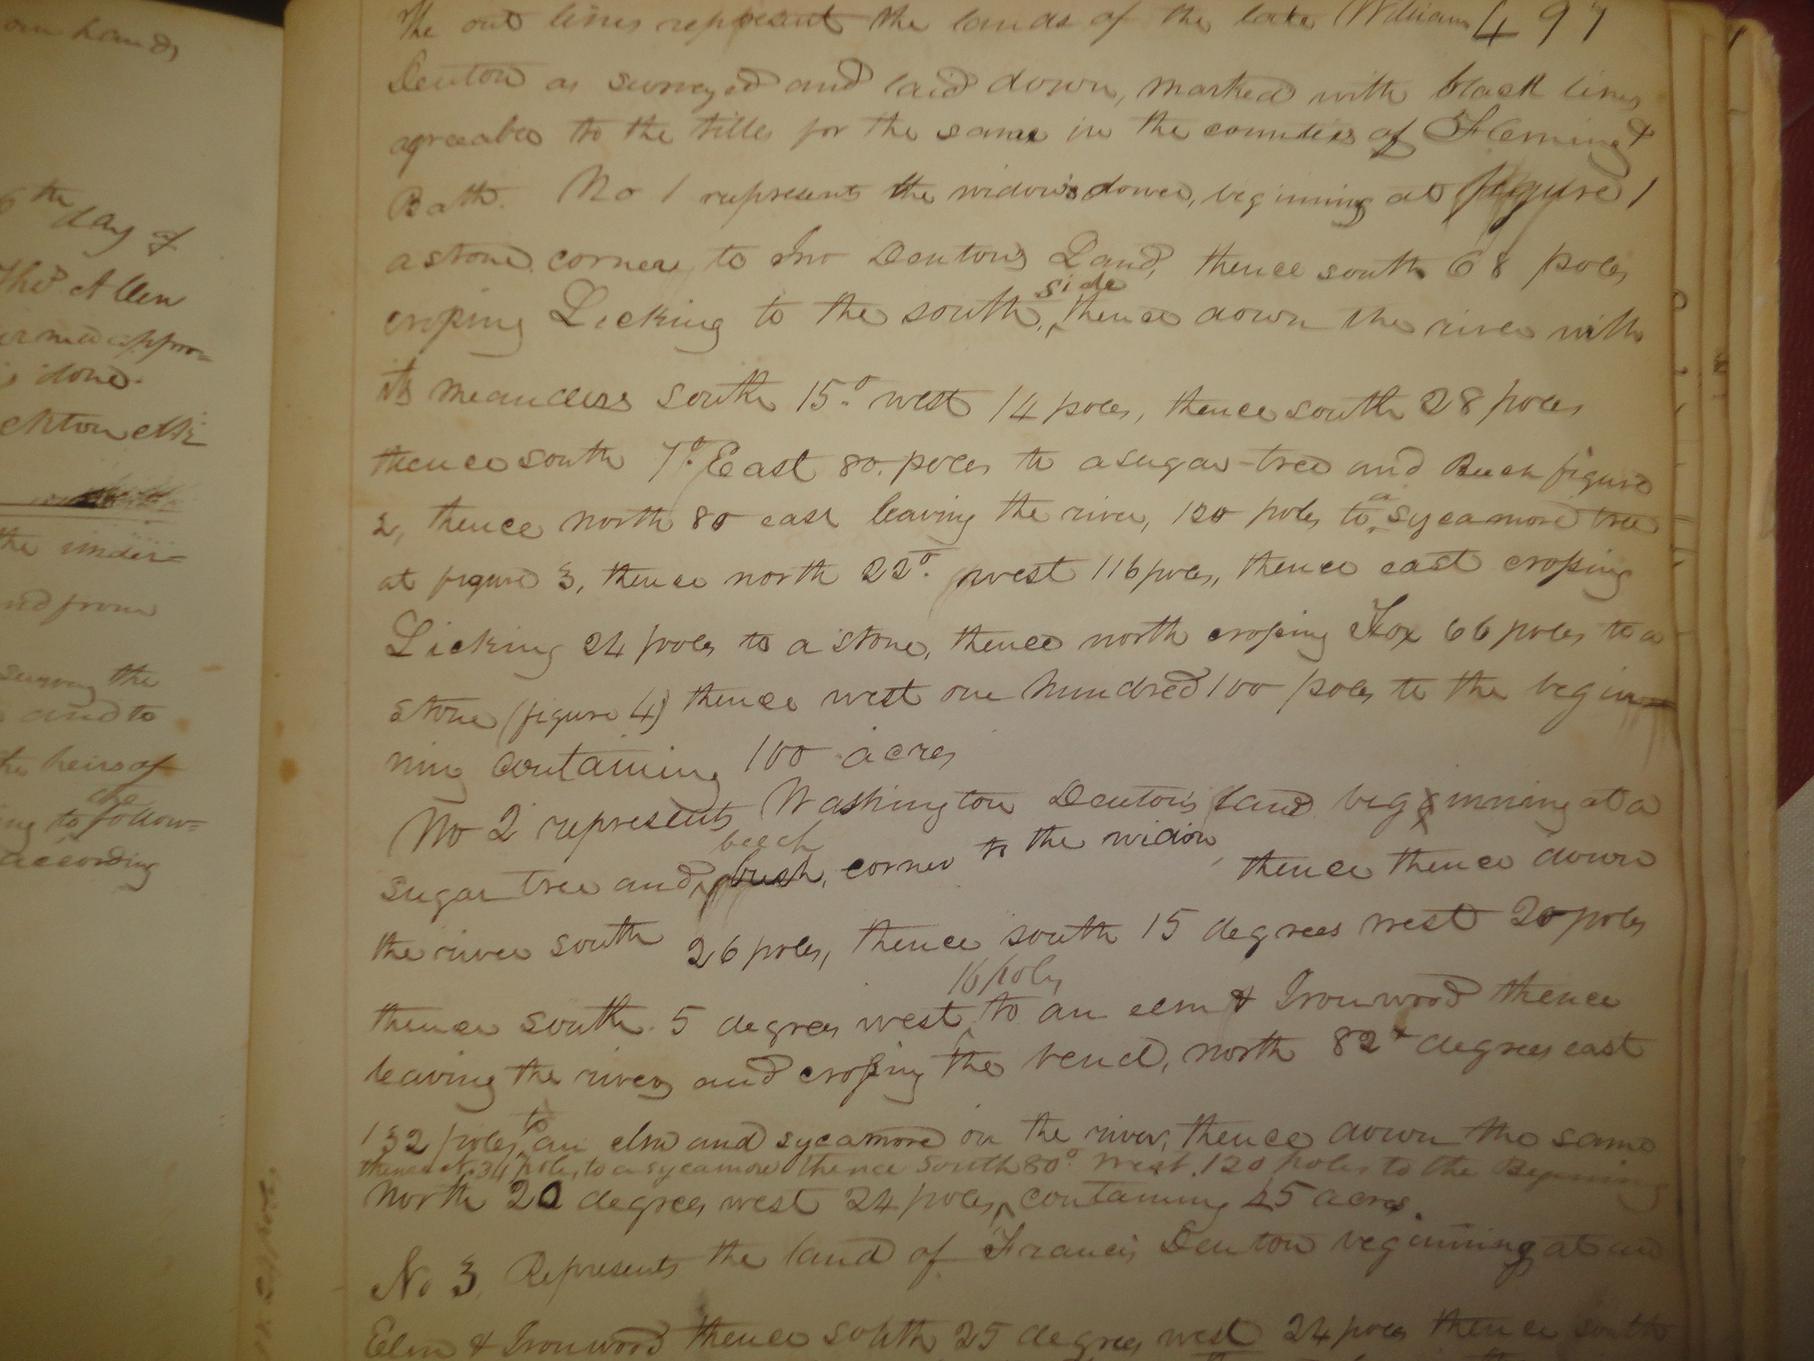 our hands
6th day of
Thos Allen
is done.
the under=
and from
survey the
and to
the heirs of
the
ing to follow=
according
497
The out lines represent the lands of the late William
Denton as surveyed and laid down, marked with black lines
agreable to the titles for the same in the counties of Fleming &
Bath. No 1 represents the widow's dower, beginning at figure 1
a stone corner to Jno Denton's Land, thence south 68 poles
crossing Licking to the south side, thence down the river with
its meanders south 15° west 14 poles, thence south 28 poles
thence south 7° East 80 poles to a sugar-tree and Buch figure
2, thence north 80 east leaving the river, 120 poles to a sycamore tree
at figure 3, thence north 22° west 116 poles, thence east crossing
Licking 24 poles to a stone, thence north crossing Fox 66 poles to a
stone (figure 4) thence west one hundred 100 poles to the begin-
ning containing 100 acres
No 2 represents Washington Denton's land beginning at a
sugar tree and beech bush, corner to the widow, thence thence down
the river south 26 poles, thence south 15 degrees west 20 poles
thence south 5 degrees west 16 poles to an elm & Ironwood thence
leaving the river and crossing the bend, north 82 degrees east
132 poles to an elm and sycamore on the river, thence down the same
thence N. 34 poles, to a sycamore thence South 80° West. 120 poles to the Beginning
North 20 degrees west 24 poles, containing 45 acres.
No 3 Represents the land of Francis Denton beginning at an
Elm & Ironwood thence south 25 degrees west 24 poles thence south